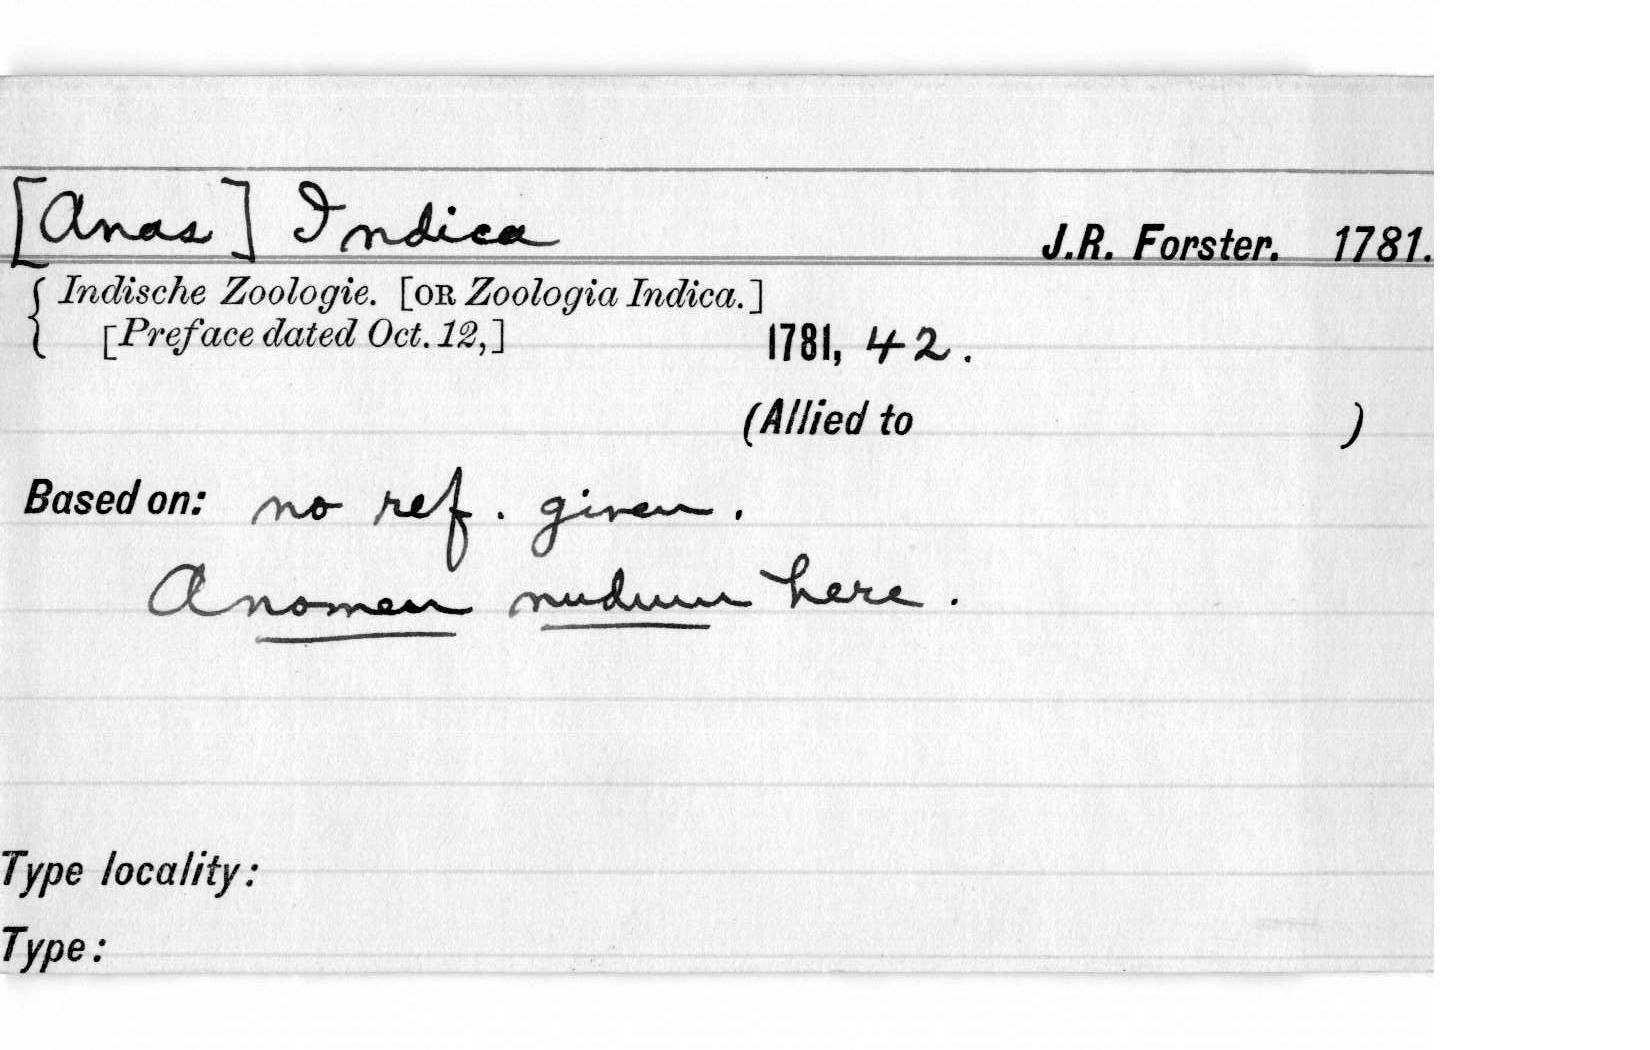 [Anas] Indica J.R. Forster. 1781.
{ Indische Zoologie. [OR Zoologia Indica.]
[Preface dated Oct. 12,] 1781, 42.
(Allied to )
Based on: no ref. given.
A nomen nudum here.
Type locality:
Type: